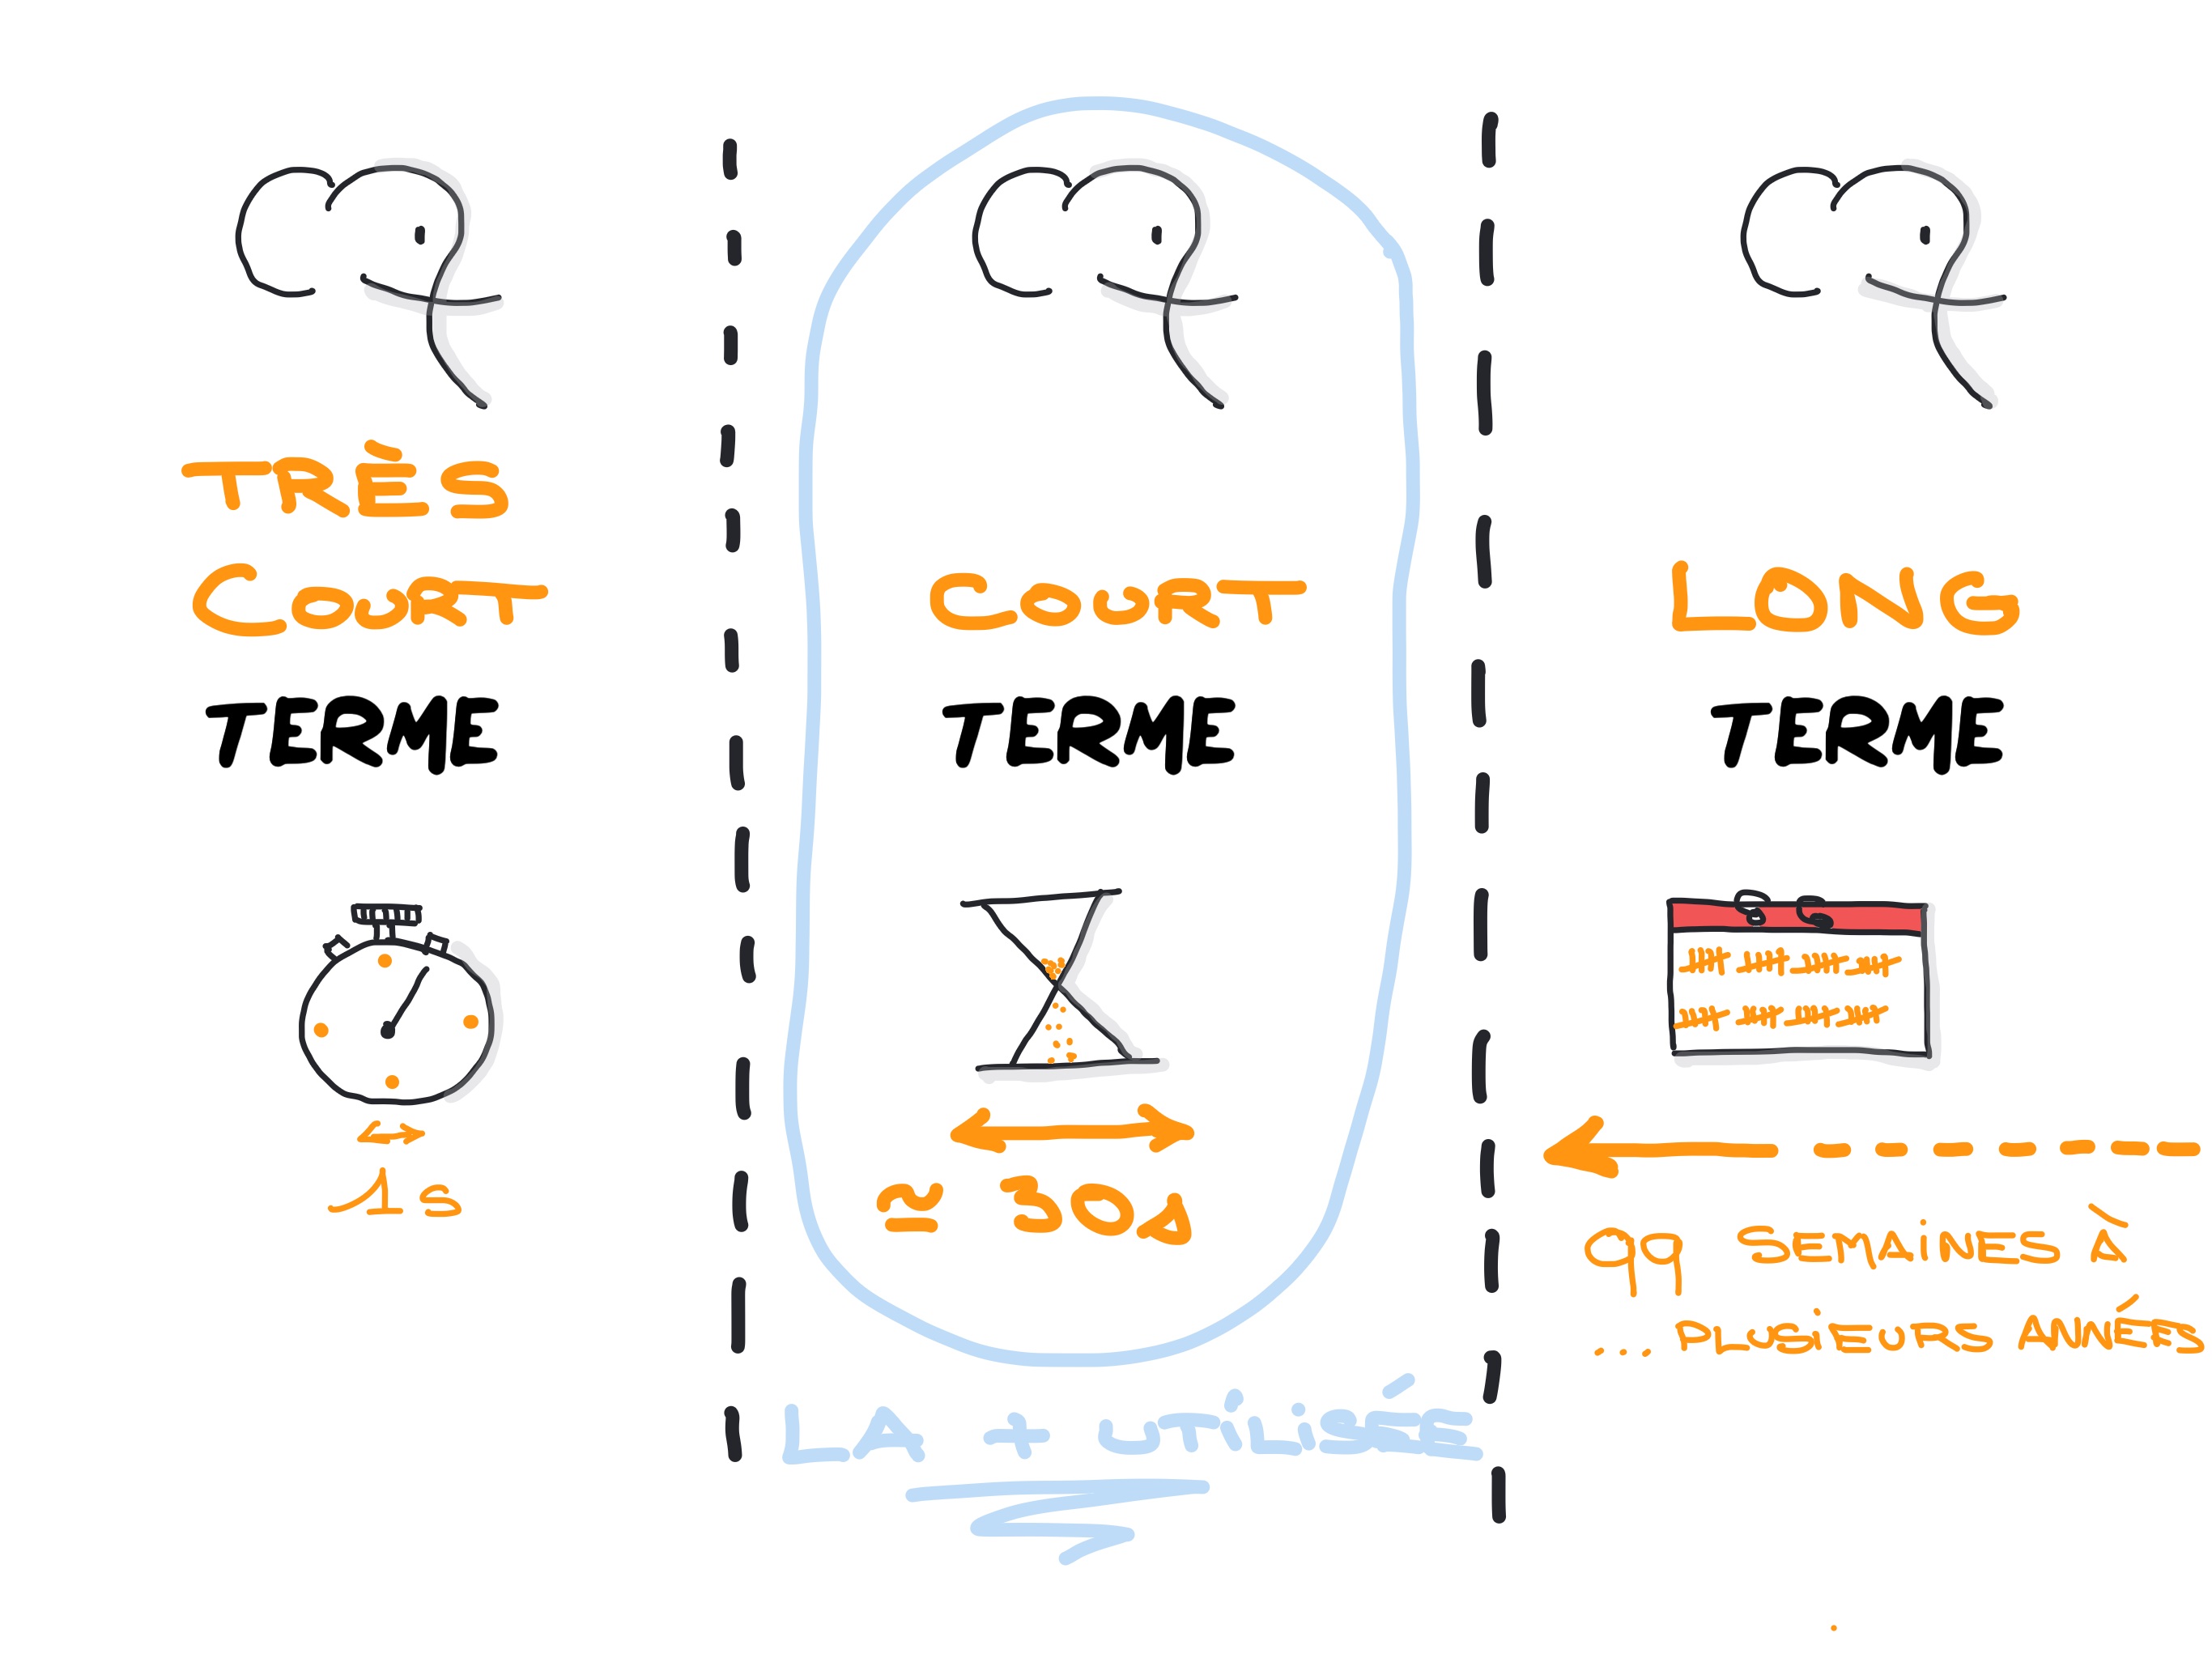 TRÈS
COURT
TERME
1s
COURT
TERME
≃ 30s
LA + UTILISÉE
LONG
TERME
qq SEMAINES À
... PLUSIEURS ANNÉES